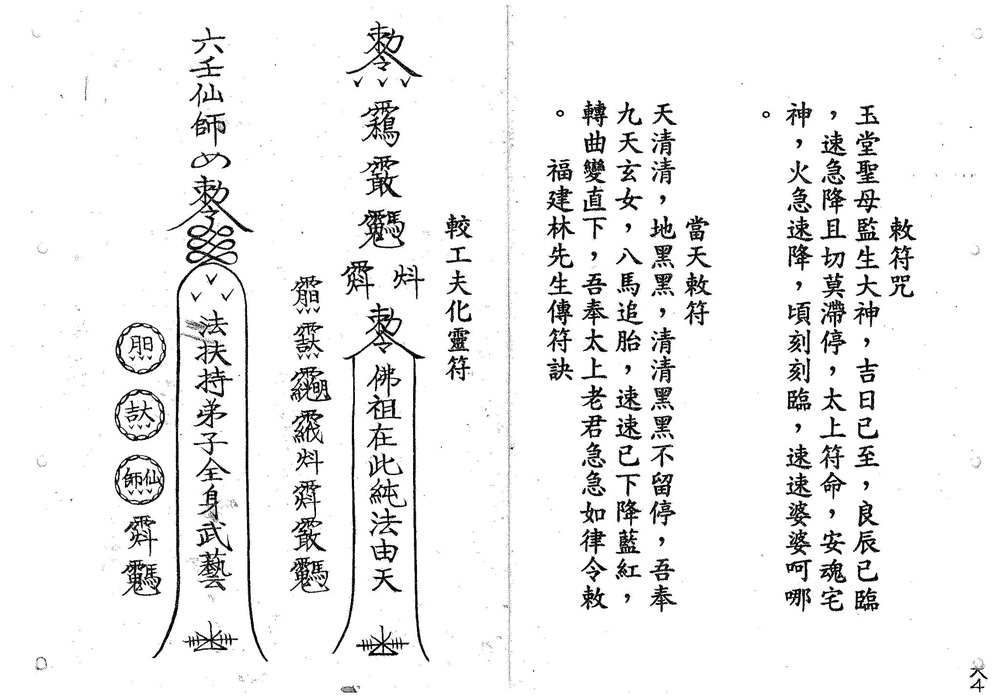 敕符咒
玉堂聖母監生大神，吉日已至，良辰已臨
，速急降且切莫滯停，太上符命，安魂宅
神，火急速降，頃刻刻臨，速速婆婆呵哪
。
當天敕符
天清清，地黑黑，清清黑黑不留停，吾奉
九天玄女，八馬追胎，速速已下降藍紅，
轉曲變直下，吾奉太上老君急急如律令敕
。
福建林先生傳符訣
較工夫化靈符
敕令
佛祖在此純法由天
六壬仙師
敕令
法扶持弟子全身武藝
仙師
大4